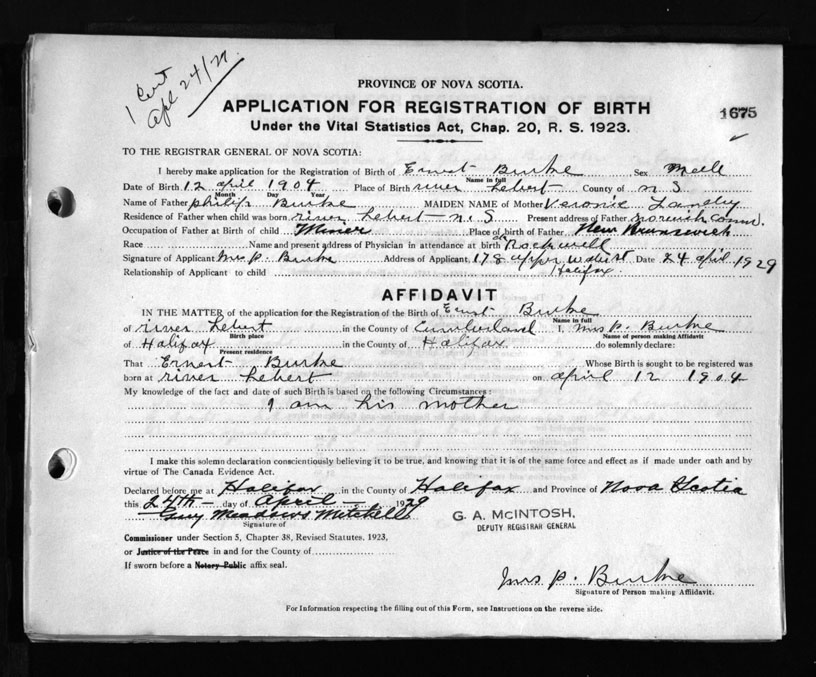 1 Cert
Apl 24/29.
PROVINCE OF NOVA SCOTIA.
APPLICATION FOR REGISTRATION OF BIRTH
1675
Under the Vital Statistics Act, Chap. 20, R. S. 1923.
TO THE REGISTRAR GENERAL OF NOVA SCOTIA:
I hereby make application for the Registration of Birth of Ernest Burke Sex Meale
Name in full
Date of Birth 12 april 1904 Place of Birth river hebert County of n S
Month Day Year
Name of Father philip Burke MAIDEN NAME of Mother Veronie Landry
Residence of Father when child was born river hebert n.S Present address of Father norwich Conn.
Occupation of Father at Birth of child Miner Place of Birth of Father New Brunswick
Race Name and present address of Physician in attendance at birth Dr Rockwell
Signature of Applicant Mrs P. Burke Address of Applicant 178 upper w. st Date 24 april 1929
Halifax.
Relationship of Applicant to child
AFFIDAVIT
IN THE MATTER of the application for the Registration of the Birth of Ernst Burke
Name in full
of river hebert in the County of Cumberland I, Mrs P. Burke
Birth place Name of person making Affidavit
of Halifax in the County of Halifax do solemnly declare:
Present residence
That Ernest Burke Whose Birth is sought to be registered was
born at river hebert on april 12 1904
My knowledge of the fact and date of such Birth is based on the following Circumstances:
I am his mother
I make this solemn declaration conscientiously believing it to be true, and knowing that it is of the same force and effect as if made under oath and by
virtue of The Canada Evidence Act.
Declared before me at Halifax in the County of Halifax and Province of Nova Scotia
this 24th day of April 1929
Guy Meadows Mitchell
Signature of
G. A. McINTOSH,
DEPUTY REGISTRAR GENERAL
Commissioner under Section 5, Chapter 38, Revised Statutes. 1923,
or Justice of the Peace in and for the County of
If sworn before a Notary Public affix seal.
Mrs P. Burke
Signature of Person making Affidavit.
For Information respecting the filling out of this Form, see Instructions on the reverse side.